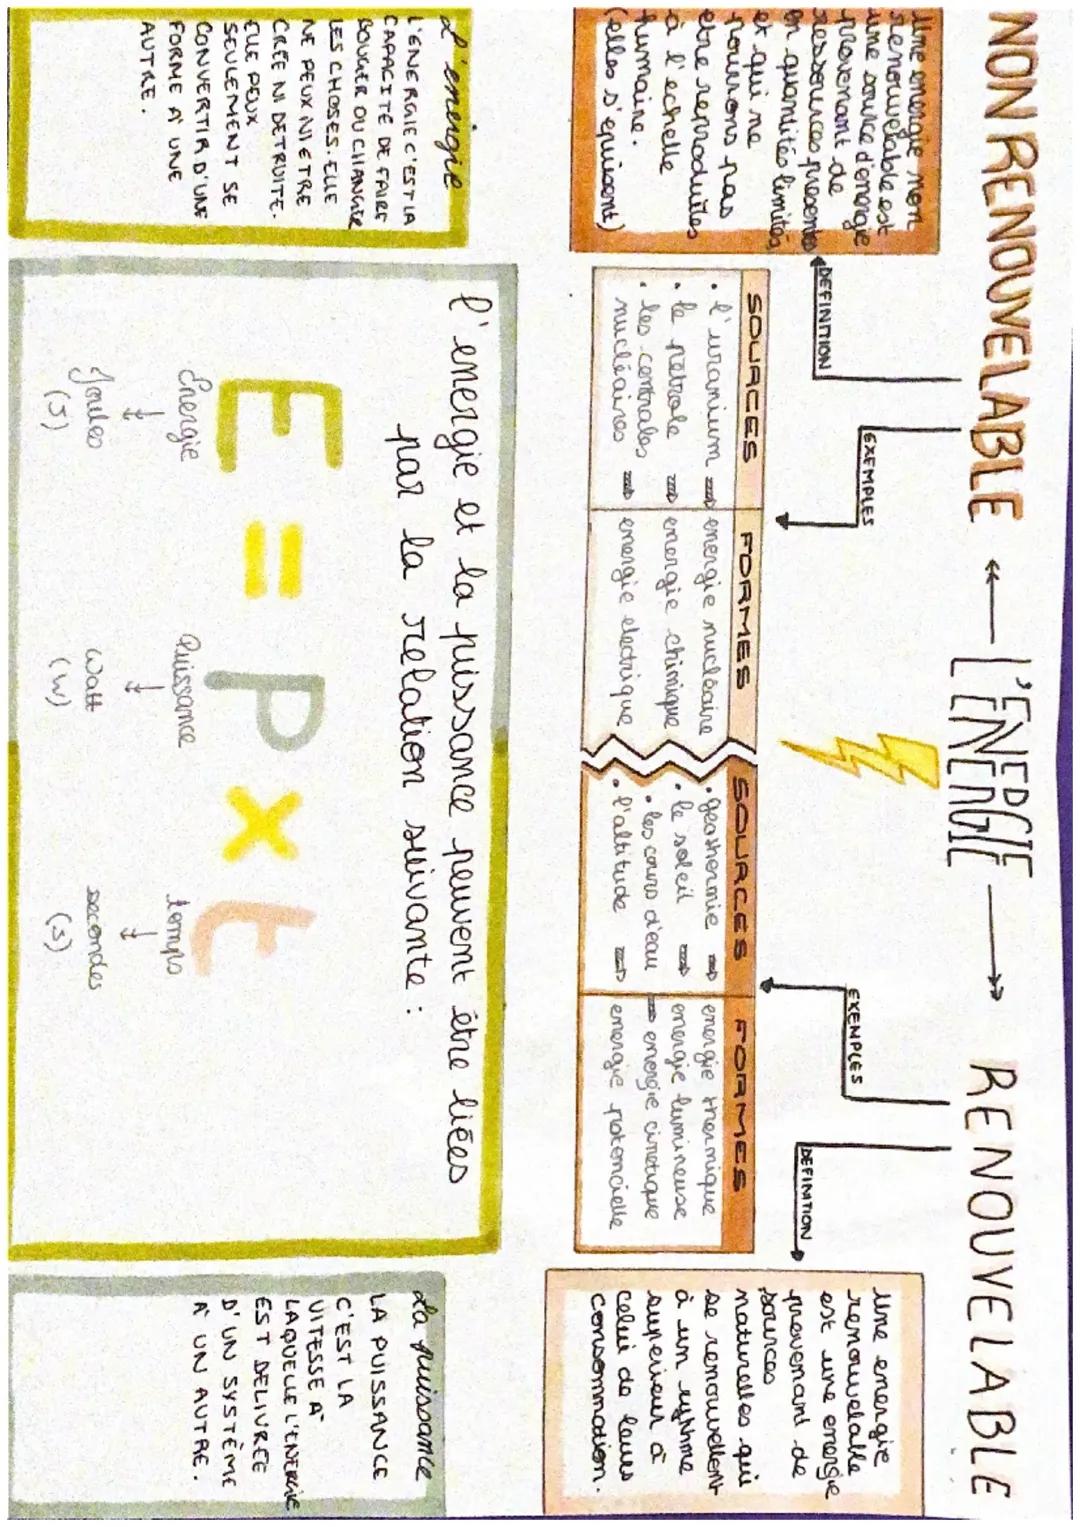 NON RENOUVELABLE ← L'ÉNERGIE → RENOUVELABLE
DEFINITION
EXEMPLES
EXEMPLES
DEFINITION
Une energie non
renouvelable est
une source d'energie
provenant de
ressources presentes
en quantités limités
et qui ne
pourrons pas
etre reproduites
à l'echelle
humaine.
(elles s'epuisent)
SOURCES FORMES
• l'uranium ⇒ energie nucléaire
• le petrole ⇒ energie chimique
• les centrales
nucléaires ⇒ energie electrique
SOURCES FORMES
• geothermie ⇒ energie thermique
• le soleil ⇒ energie lumineuse
• les cours d'eau ⇒ energie cinetique
• l'altitude ⇒ energie potencielle
Une energie
renouvelable
est une energie
provenant de
sources
naturelles qui
se renouvellent
à un rythme
superieur à
celui de leurs
consommation.
L'energie
L'ENERGIE C'EST LA
CAPACITÉ DE FAIRE
BOUGER OU CHANGER
LES CHOSES. ELLE
NE PEUX NI ETRE
CRÉE NI DETRUITE.
ELLE PEUX
SEULEMENT SE
CONVERTIR D'UNE
FORME À UNE
AUTRE.
l'energie et la puissance peuvent être liées
par la relation suivante :
E = P x t
Énergie Puissance temps
↓ ↓ ↓
Joules Watt secondes
(J) (W) (s)
La puissance
LA PUISSANCE
C'EST LA
VITESSE À
LAQUELLE L'ENERGIE
EST DELIVRÉE
D'UN SYSTÈME
À UN AUTRE.